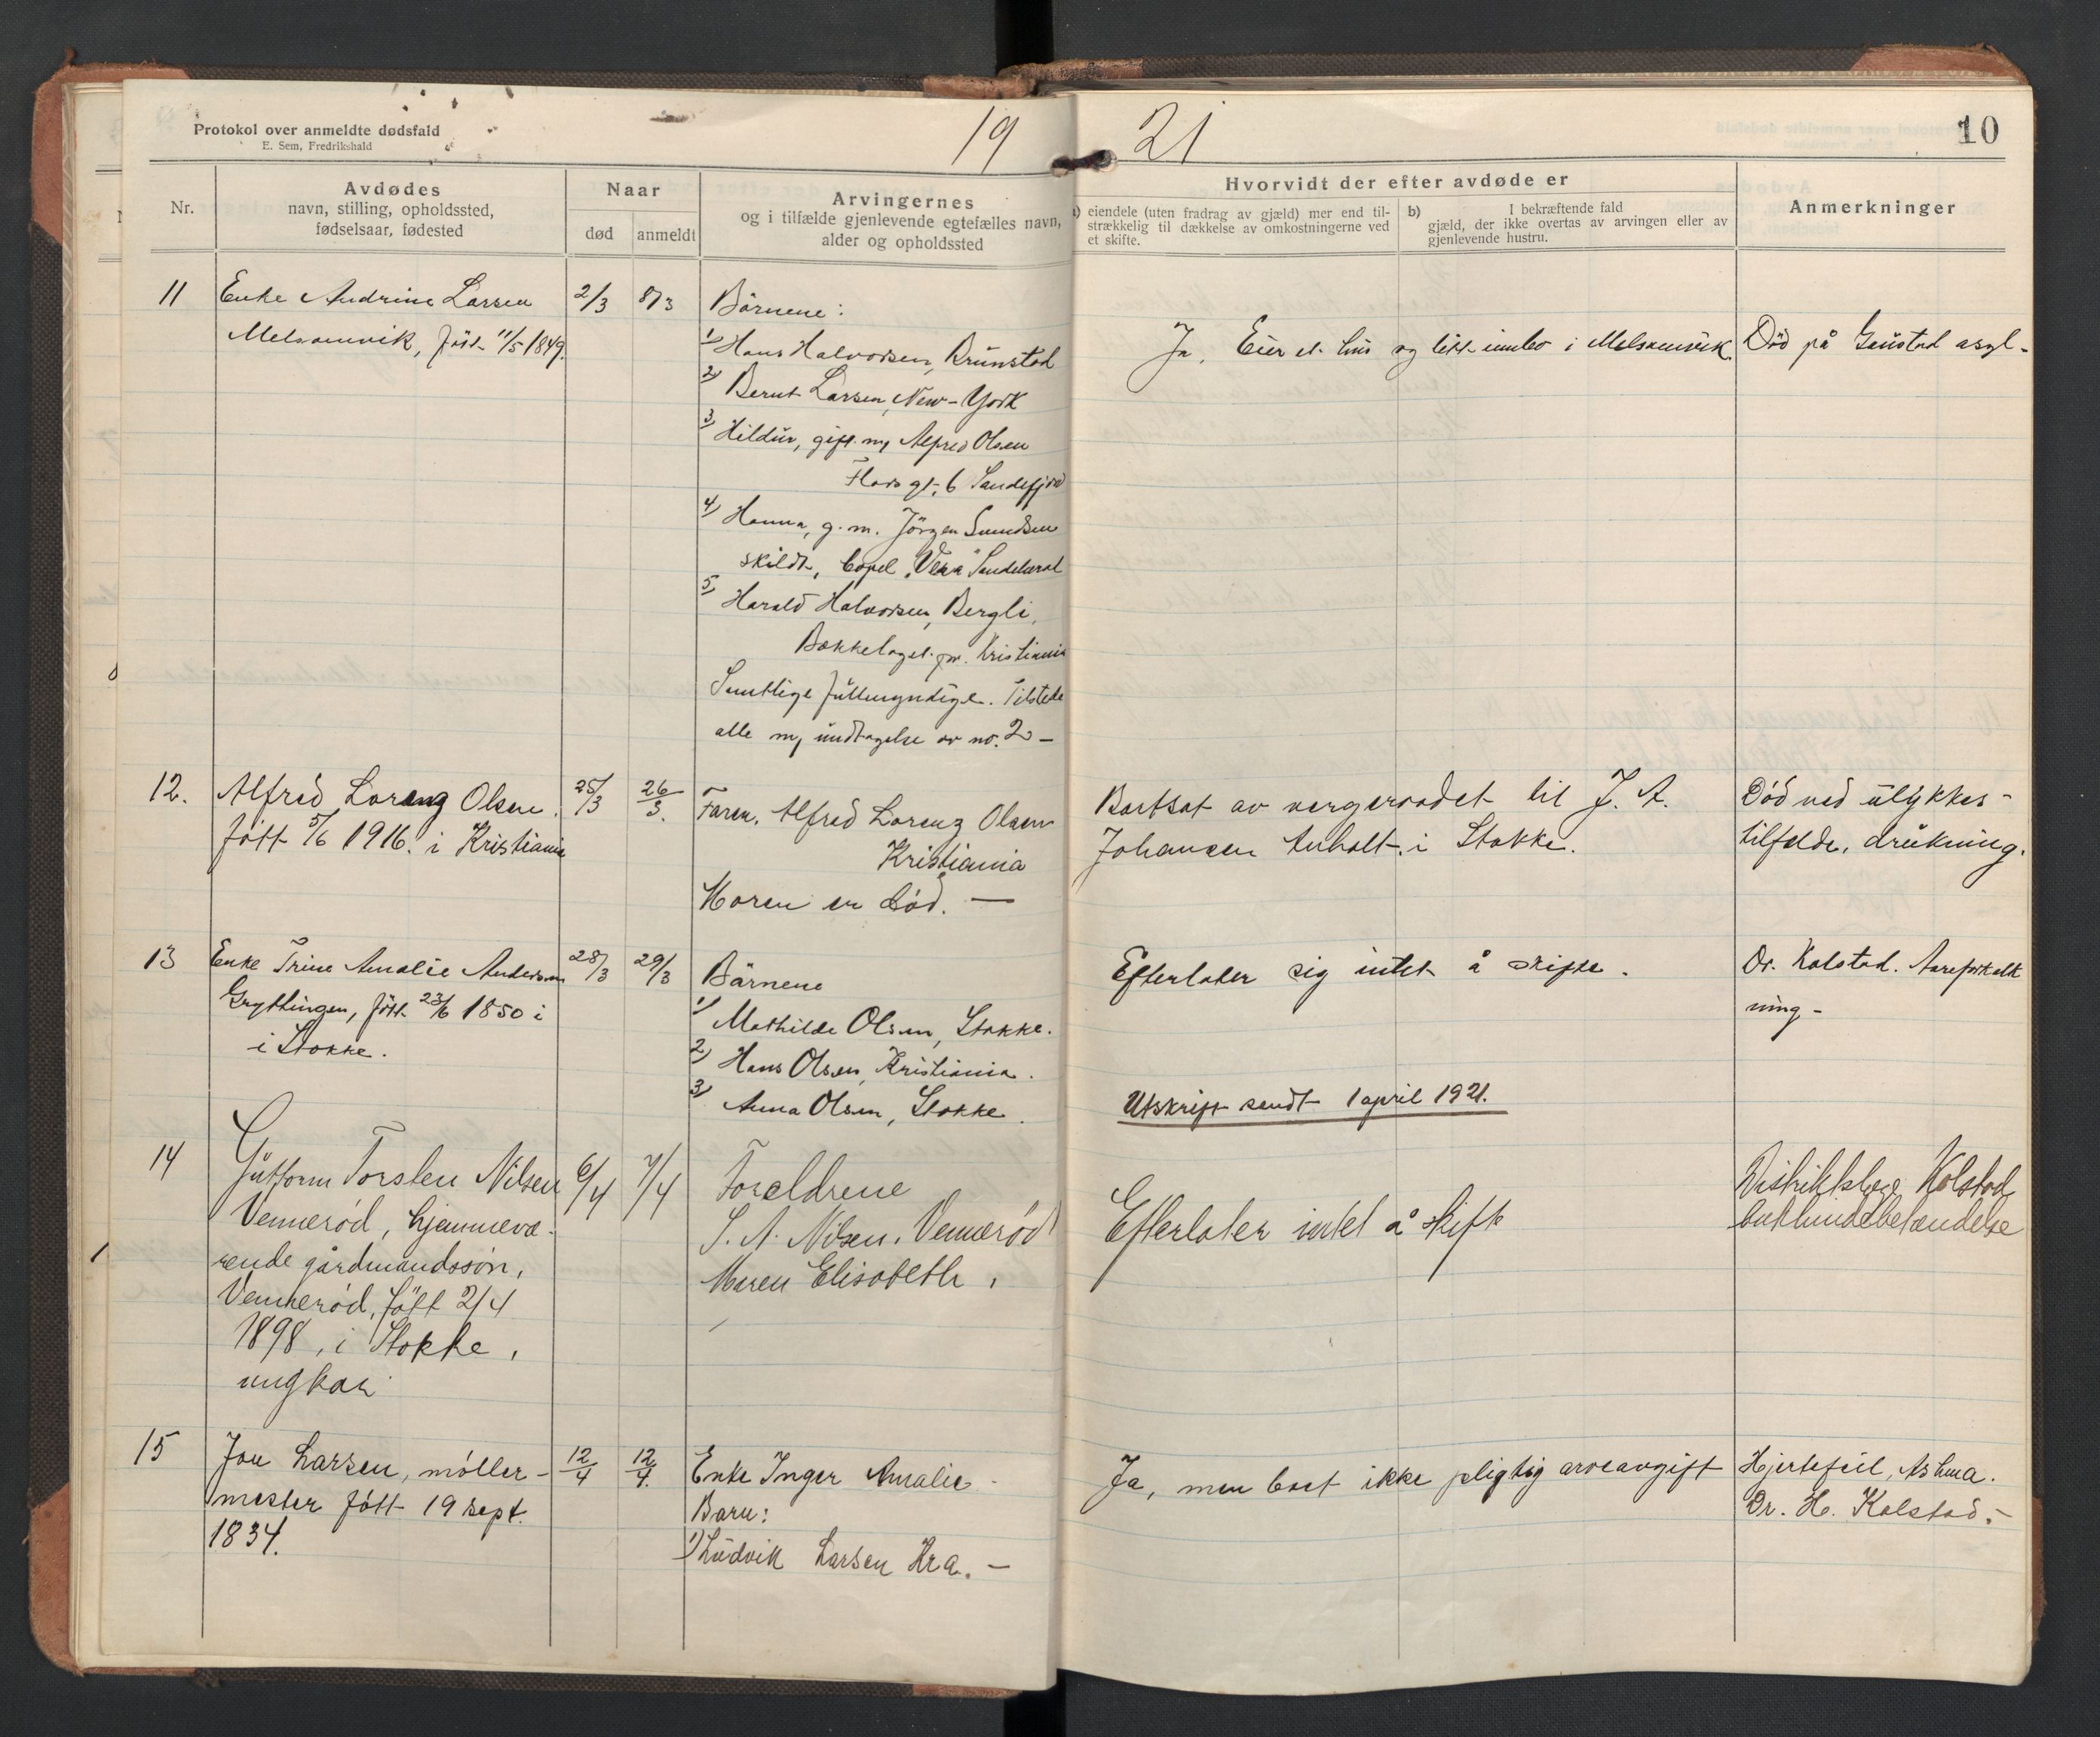 Protokol over anmeldte dødsfald
E. Sem, Fredrikshald
19 21
10
Nr.
Avdødes
navn, stilling, opholdssted,
fødselsaar, fødested
Naar
død
anmeldt
Arvingernes
og i tilfælde gjenlevende egtefælles navn,
alder og opholdssted
Hvorvidt der efter avdøde er
a) eiendele (uten fradrag av gjæld) mer end til-
strækkelig til dækkelse av omkostningerne ved
et skifte.
b) I bekræftende fald
gjæld, der ikke overtas av arvingen eller av
gjenlevende hustru.
Anmerkninger
11
Enke Andrine Larsen
Melsomvik, født 11/5 1849.
2/3
8/3
Børnene:
1) Hans Halvorsen, Brunstad
2) Bernt Larsen, New-York
3) Hildur, gift m/ Alfred Olsen
Flors gt. 6 Sandefjord
4) Hanna, g. m. Jörgen
skildt, "Vera"
5) Harald Halvorsen, Bergli,
Bækkelaget pr. Kristiania
Samtlige fuldmyndige. Tilstede
alle m/ undtagelse av no. 2 –
Ja, Eier et hus og litt innbo i Melsomvik.
Död på Gaustad asyl –
12.
Alfred Lorenz Olsen.
født 5/6 1916. i Kristiania
25/3
26/3.
Faren, Alfred Lorenz Olsen
Kristiania
Moren er död. —
Bortsat av vergeraadet til J. A.
Johansen Anholt i Stokke.
Död ved ulykkes-
tilfelde, drukning.
13
Enke Trine Amalie Andersen
Gryttingen, født 23/6 1850 i
i Stokke.
28/3
29/3
Børnene
1) Mathilde Olsen, Stokke.
2) Hans Olsen, Kristiania.
3) Anna Olsen, Stokke.
Efterlater sig intet å skifte.
Dr. Kolstad. Aareforkalk
ning –
Utskrift sendt 1 april 1921.
14
Guttorm Torslen Nilsen
Vennerød, hjemmevæ-
rende gårdmandssøn,
Vennerød, født 2/4
1898, i Stokke,
ungkar
6/4
7/4
Foreldrene
S. A. Nilsen, Vennerød
Maren Elisabeth,
Efterlater intet å skifte
Distriktslæge Kolstad
15
Jon Larsen, møller-
mester født 19 sept.
1834.
12/4
12/4.
Enke Inger Amalie
Barn:
1) Ludvik Larsen Kra. –
Ja, men boet ikke pligtig arveavgift
Hjertefeil, Astma.
Dr. H. Kolstad. –